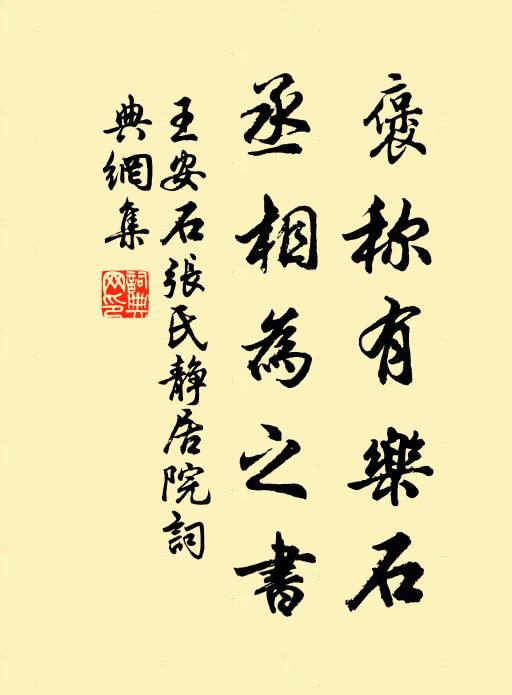 褒称有樂石
丞相為之書
王安石張氏静居院詞
典網集
詞典網印